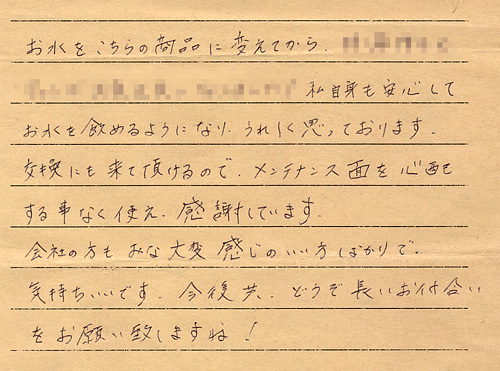 お水をこちらの商品に変えてから、
私自身も安心して
お水を飲めるようになり、うれしく思っております。
交換にも来て頂けるので、メンテナンス面を心配
する事なく使え、感謝しています。
会社の方もみな大変感じのいい方ばかりで、
気持ちいいです。今後共、どうぞ長いお付合い
をお願い致しますね！